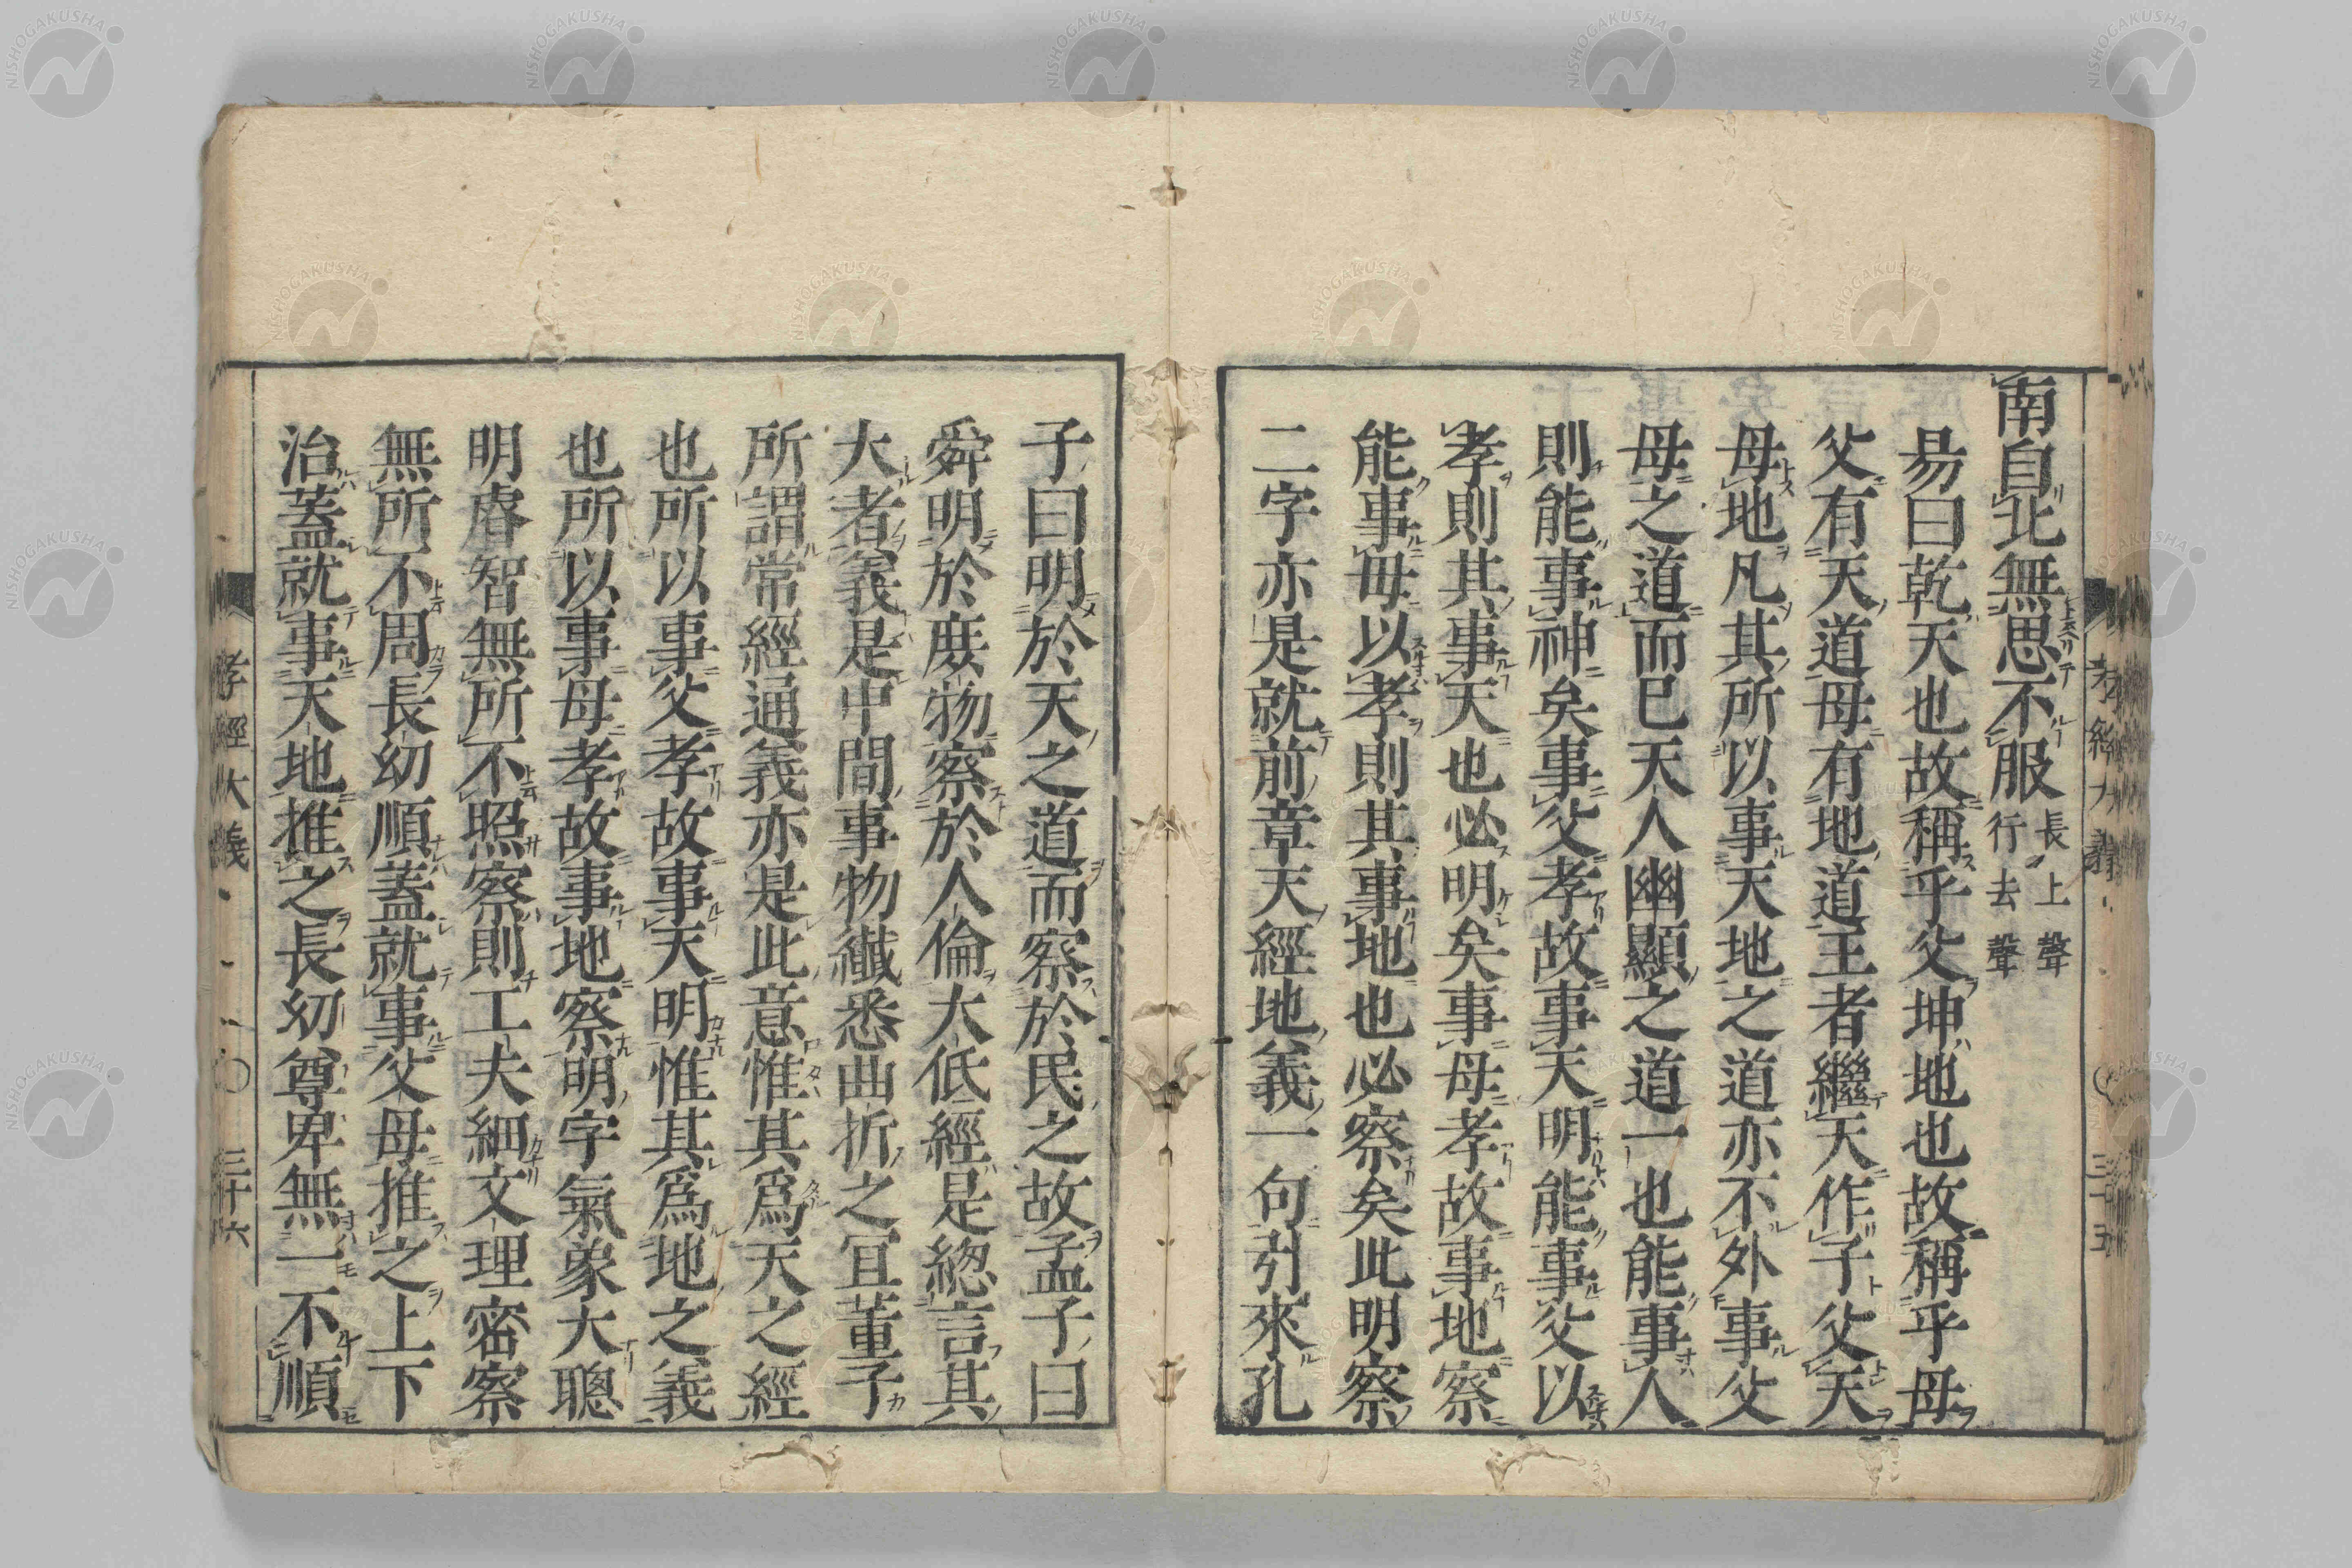 南自北無思不服長上聲行去聲
易曰乾天也故稱乎父坤地也故稱乎母
父有天道母有地道王者繼天作子父天
母地凡其所以事天地之道亦不外事父
母之道而已天人幽顯之道一也能事人
則能事神矣事父孝故事天明能事父以
孝則其事天也必明矣事母孝故事地察
能事母以孝則其事地也必察矣此明察
二字亦是就前章天經地義一句引來孔
子曰明於天之道而察於民之故孟子曰
舜明於庶物察於人倫大低經是總言其
大者義是中間事物纖悉曲折之宜董子
所謂常經通義亦是此意惟其爲天之經
也所以事父孝故事天明惟其爲地之義
也所以事母孝故事地察明字氣象大聰
明睿智無所不照察則工夫細文理密察
無所不周長幼順蓋就事父母推之上下
治蓋就事天地推之長幼尊卑無一不順
孝經大義
三十六
NISHOGAKUSHA